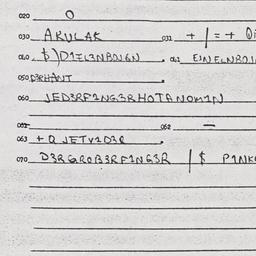 020 O
030 AKULAK 031 + | = + Oi
040 $)D1EL3NBOJGN. 041 EJNELNBOJ
050 D3RHANT
060 JED3RF2NG3RHOTANOM1N
061 062 —
063 + Q JETV1D3R.
070 D3RGROB3RF1NG3R | $ P1NK